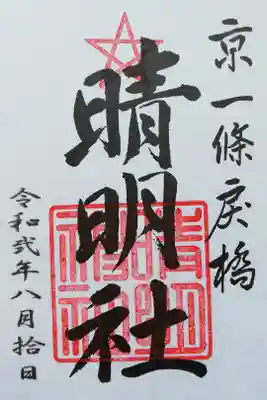 京一條戻橋
晴明社
令和弐年八月拾日